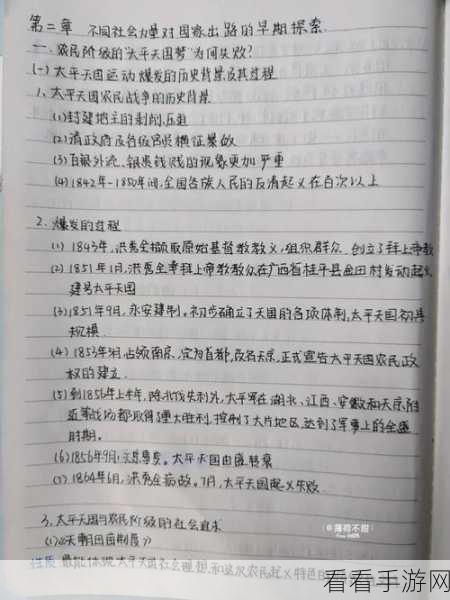 第二章 不同社会力量对国家出路的早期探索
一、农民阶级的"太平天国梦"为何失败?
(一)太平天国运动爆发的历史背景及其过程
1、太平天国农民战争的历史背景
(1)封建地主的剥削、压迫
(2)清政府及各级官员横征暴敛
(3)白银外流、银贵钱贱的现象更加严重
(4)1842年-1850年间,全国各族人民的反清起义在百次以上
2、爆发的过程
(1)1843年,洪秀全撷取原始基督教教义,组织群众,创立了拜上帝教
(2)1851年1月,洪秀全率拜上帝教教众在广西省桂平县金田村发动起义
建号太平天国
(3)1851年9月,永安建制。初步确立了天国的各项体制,太平天国初具
规模.
(4)1853年3月,占领南京,定为首都,改名天京,正式宣告太平天国农民政
权的建立.
(5)到1856年上半年,除北伐失利外,太平军在湖北、江西、安徽和天京附
近等战场都取得重大胜利,控制了大片地区,达到了军事上的全盛
时期。
(6)1856年9月,天京事变。太平天国由盛转衰
(7)1864年6月,洪秀全病故。7月,太平天国起义失败.
3、太平天国与农民阶级的社会追求
(1)《天朝田亩制度》
性质:最能体现太平天国社会理想和这次农民起义特色
@薄荷不甜
看看手游网
www.kkssyy.com